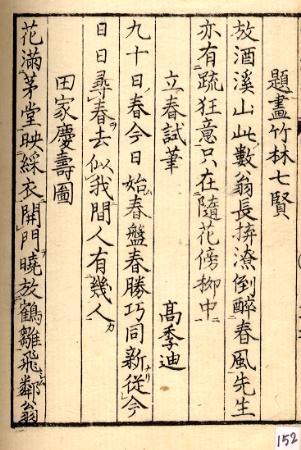 題畫竹林七賢
放酒溪山此數翁長拚潦倒醉春風先生
亦有疏狂意只在隨花傍柳中
立春試筆　高季迪
九十日春今日始春盤春勝巧同新從今
日日尋春去似我間人有幾人
田家慶壽圖
花滿茅堂映綵衣開門曉放鶴雛飛鄰翁
152